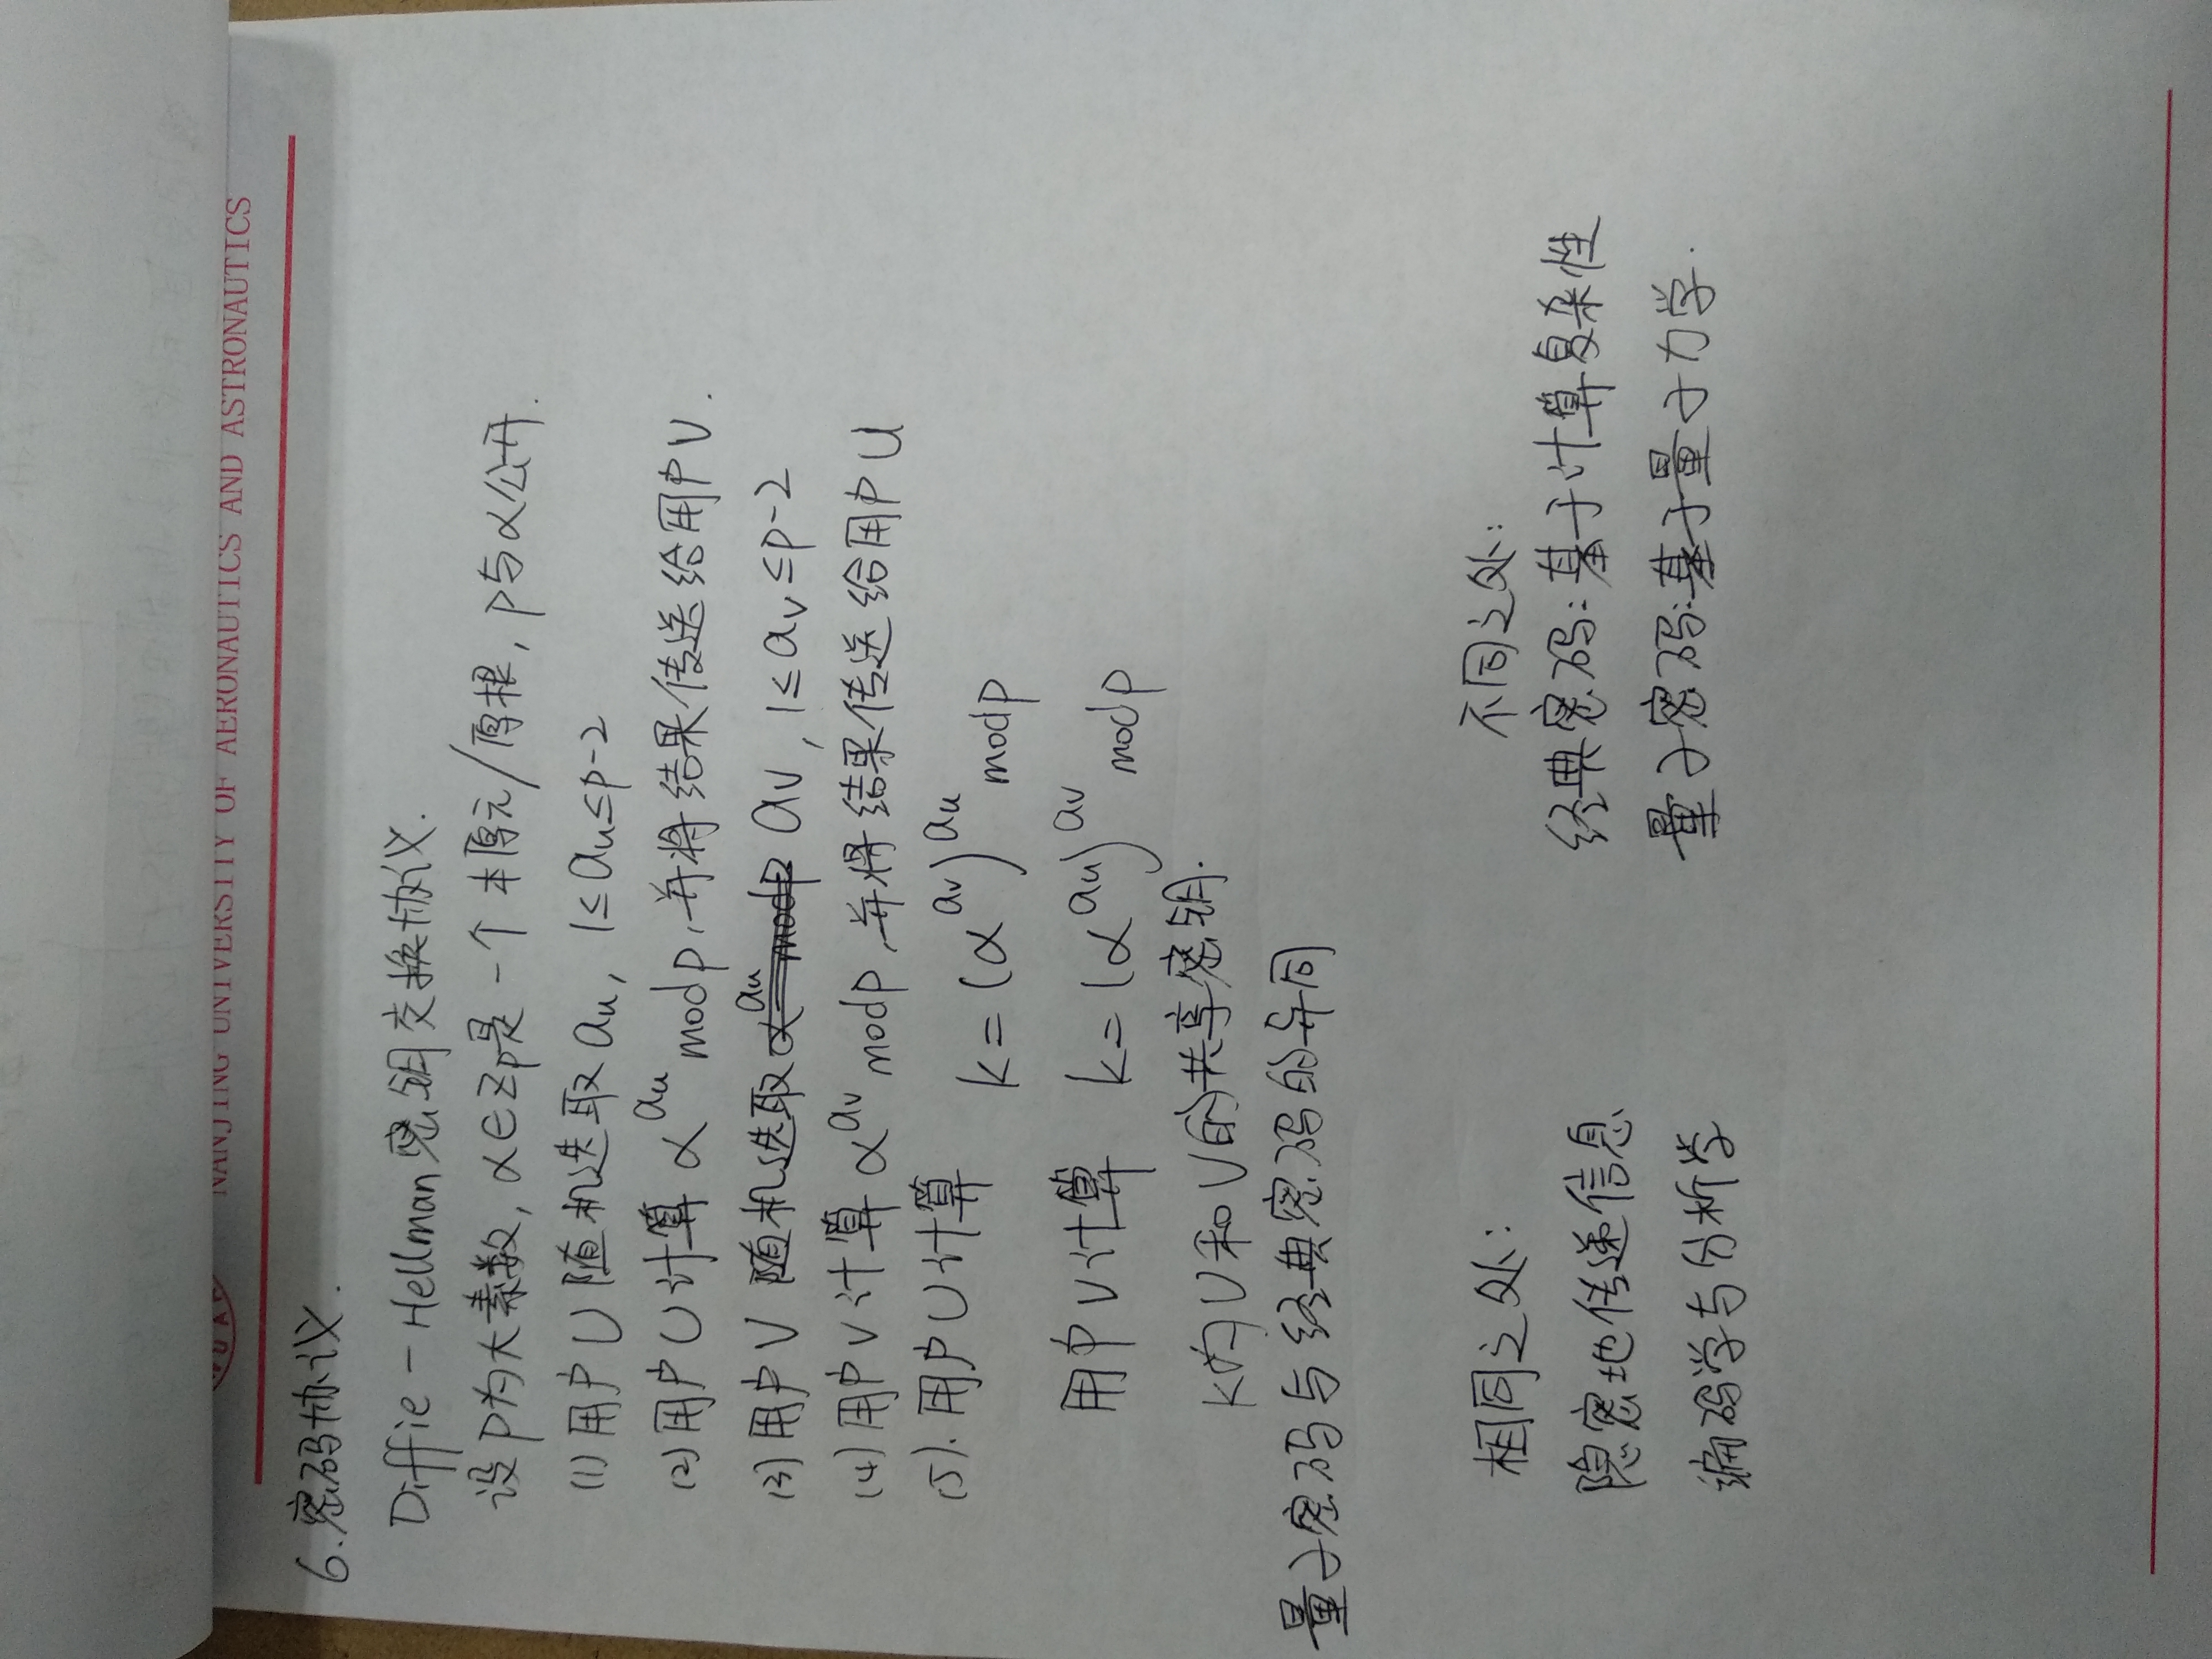 NANJING UNIVERSITY OF AERONAUTICS AND ASTRONAUTICS
6.密码协议.
Diffie-Hellman密钥交换协议.
设p为大素数,α∈Zp是一个本原元/原根,p与α公开.
(1)用户U随机选取au,1≤au≤p-2
(2)用户U计算α^au modp,并将结果传送给用户V.
(3)用户V随机选取 α^au modp av,1≤av≤p-2
(4)用户V计算α^av modp,并将结果传送给用户U
(5).用户U计算 k=(α^av)^au modp
用户V计算 k=(α^au)^av modp
K为U和V的共享密钥.
量子密码与经典密码的异同
相同之处:
隐密地传递信息
编码学与分析学
不同之处:
经典密码:基于计算复杂性
量子密码:基于量子力学.